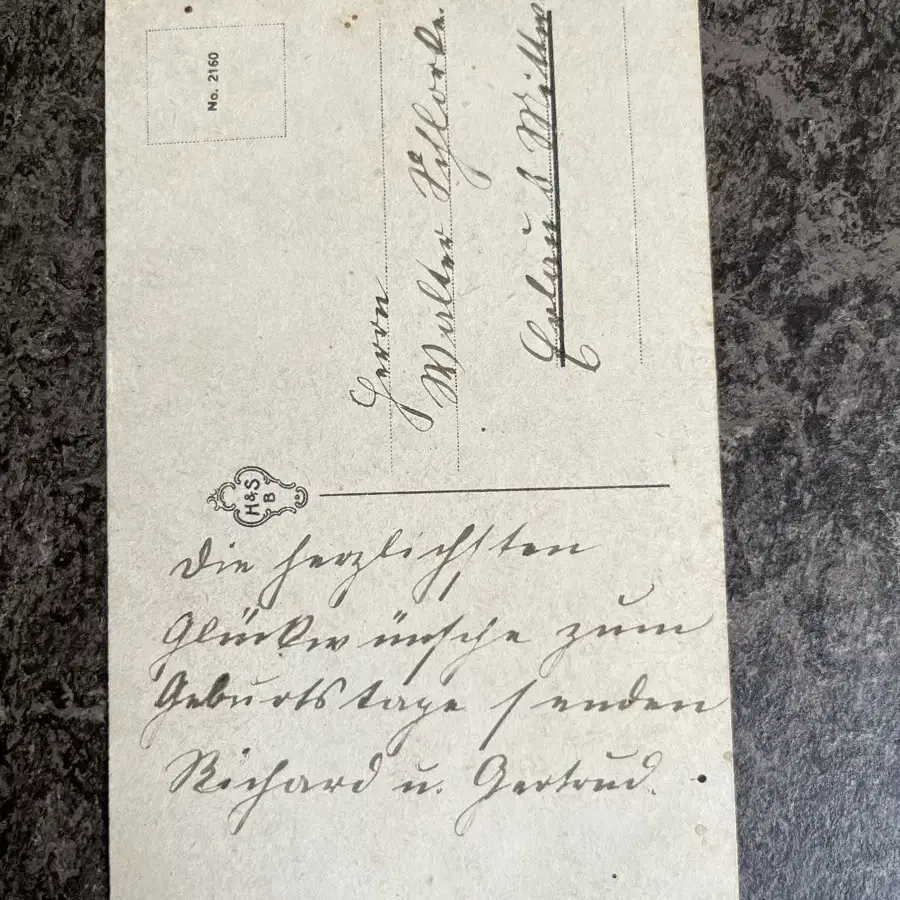 No. 2160
H&S
B
Herrn
Walter
Die herzlichsten
Glückwünsche zum
Geburtstage senden
Richard u. Gertrud.